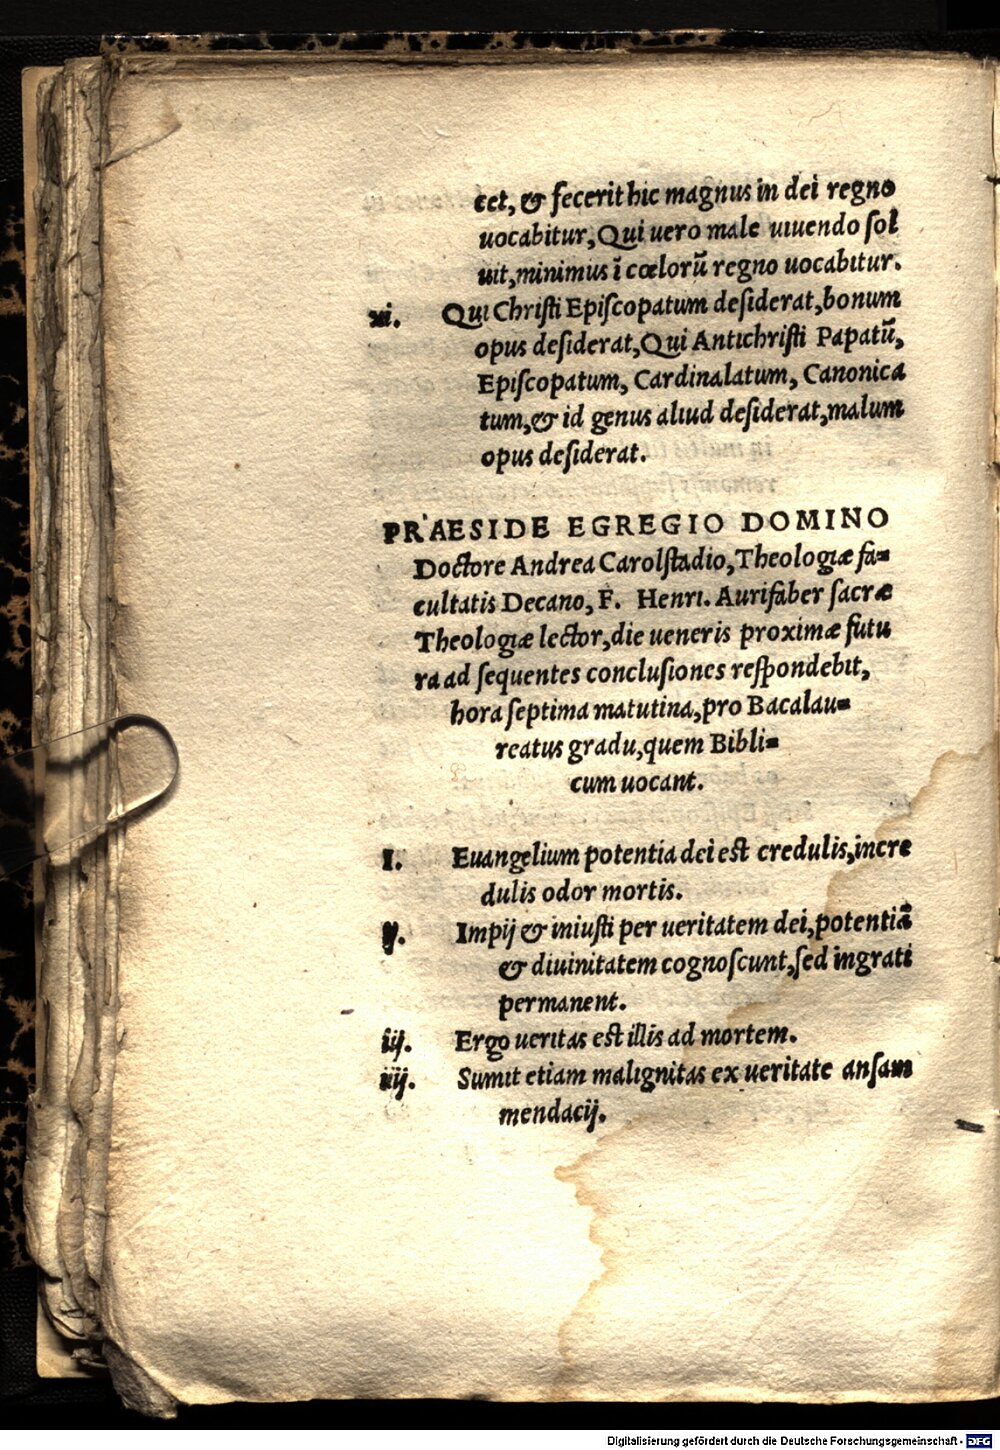 cet, & fecerit hic magnus in dei regno
uocabitur, Qui uero male uiuendo sol
uit, minimus ī cœlorū regno uocabitur.
xi. Qui Christi Episcopatum desiderat, bonum
opus desiderat, Qui Antichristi Papatū,
Episcopatum, Cardinalatum, Canonica
tum, & id genus aliud desiderat, malum
opus desiderat.
PRAESIDE EGREGIO DOMINO
Doctore Andrea Carolstadio, Theologiæ fa=
cultatis Decano, F. Henri. Aurifaber sacræ
Theologiæ lector, die ueneris proximæ futu
ra ad sequentes conclusiones respondebit,
hora septima matutina, pro Bacalau=
reatus gradu, quem Bibli=
cum uocant.
I. Euangelium potentia dei est credulis, incre
dulis odor mortis.
ij. Impij & iniusti per ueritatem dei, potentiā
& diuinitatem cognoscunt, sed ingrati
permanent.
iij. Ergo ueritas est illis ad mortem.
iiij. Sumit etiam malignitas ex ueritate ansam
mendacij.
Digitalisierung gefördert durch die Deutsche Forschungsgemeinschaft - DFG